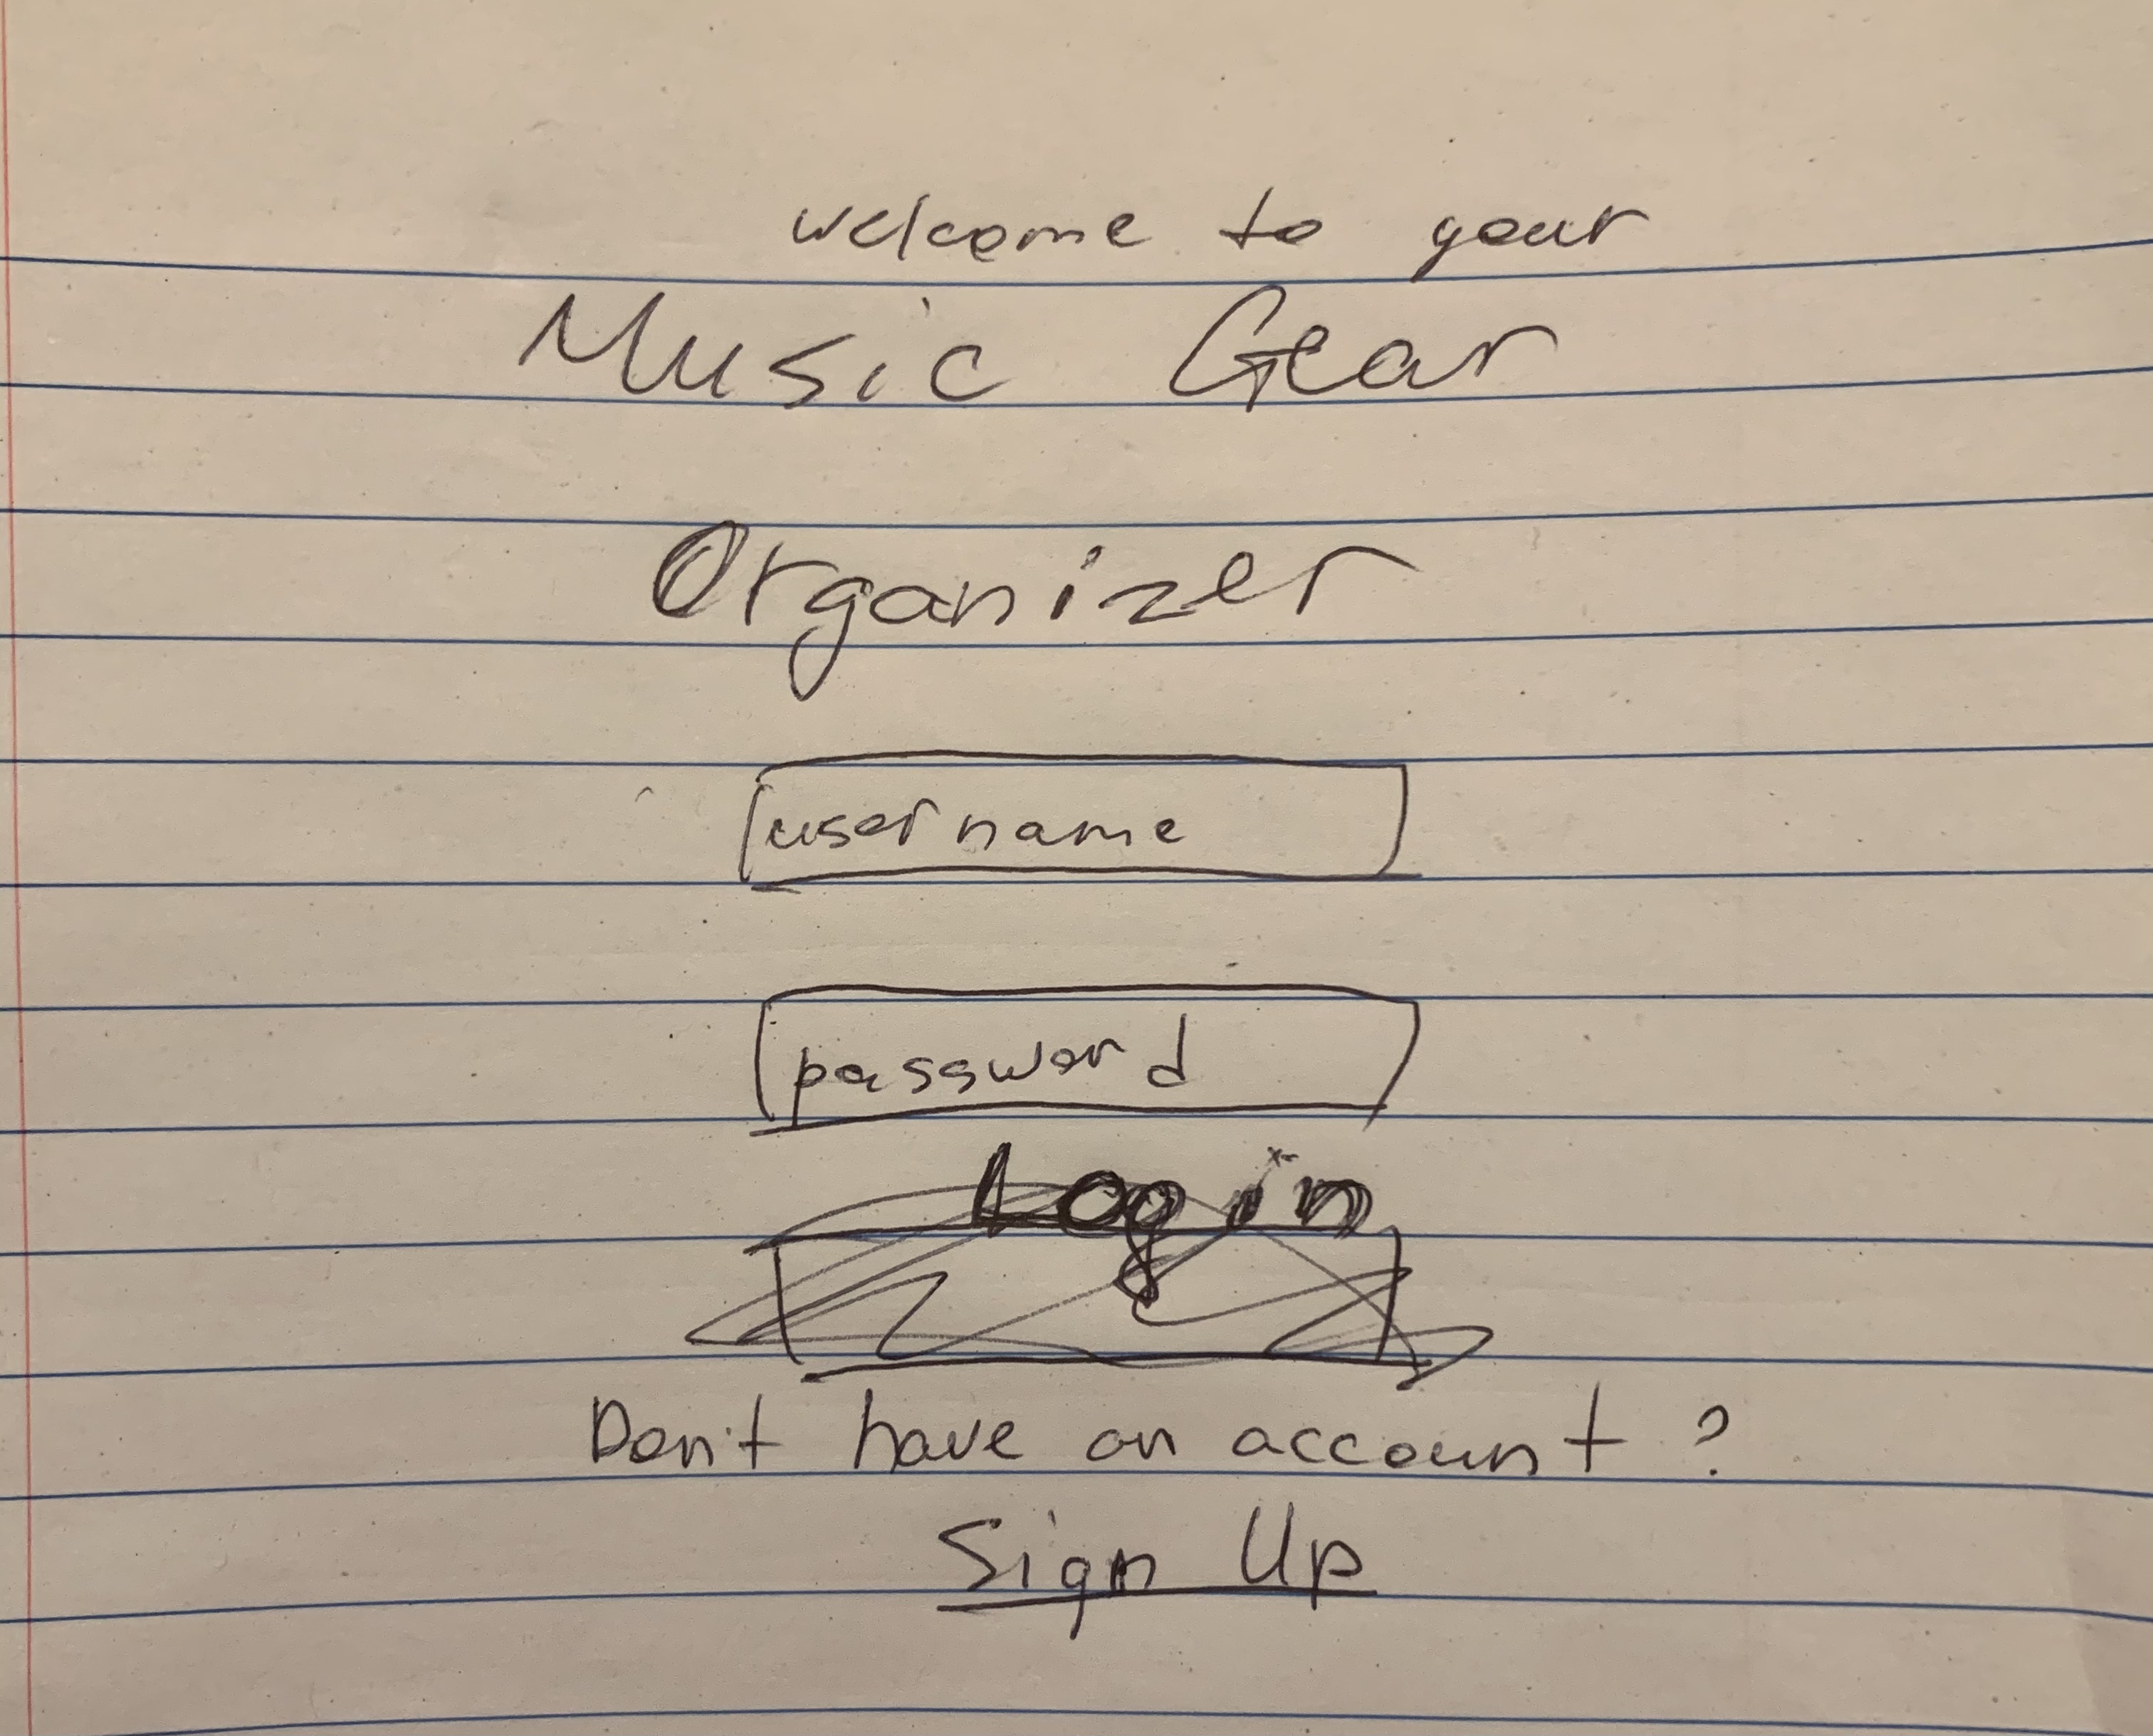 welcome to your
Music Gear
Organizer
username
password
Login
Don't have an account?
Sign Up